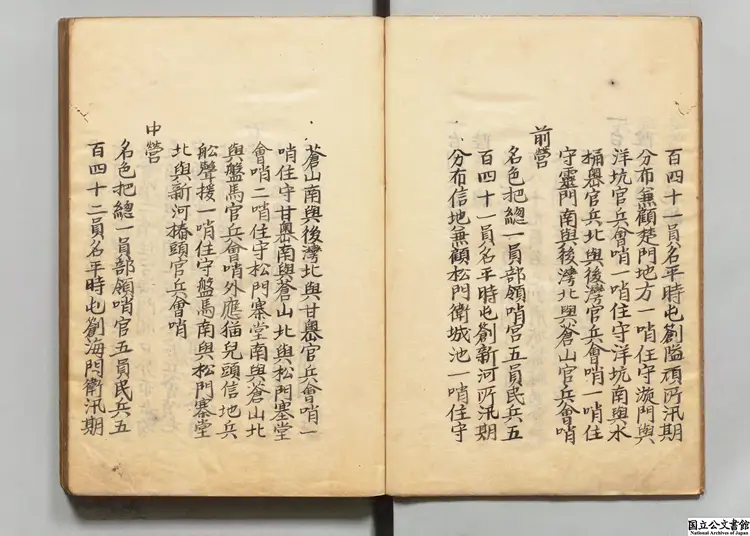 百四十一員名平時屯劄隘頑所汛期
分布兼顧楚門地方一哨住守漩門與
洋坑官兵會哨一哨住守洋坑南與水
桶嶴官兵北與後灣官兵會哨一哨住
守靈門南與後灣北與蒼山官兵會哨
前營
名色把總一員部領哨官五員民兵五
百四十一員名平時屯劄新河所汛期
分布信地兼顧松門衛城池一哨住守
蒼山南與後灣北與甘嶴官兵會哨一
哨住守甘嶴南與蒼山北與松門寨堂
會哨二哨住守松門寨堂南與蒼山北
與盤馬官兵會哨外應猫兒頭信地兵
舩聲援一哨住守盤馬南與松門寨堂
北與新河椿頭官兵會哨
中營
名色把總一員部領哨官五員民兵五
百四十二員名平時屯劄海門衛汛期
国立公文書館
National Archives of Japan